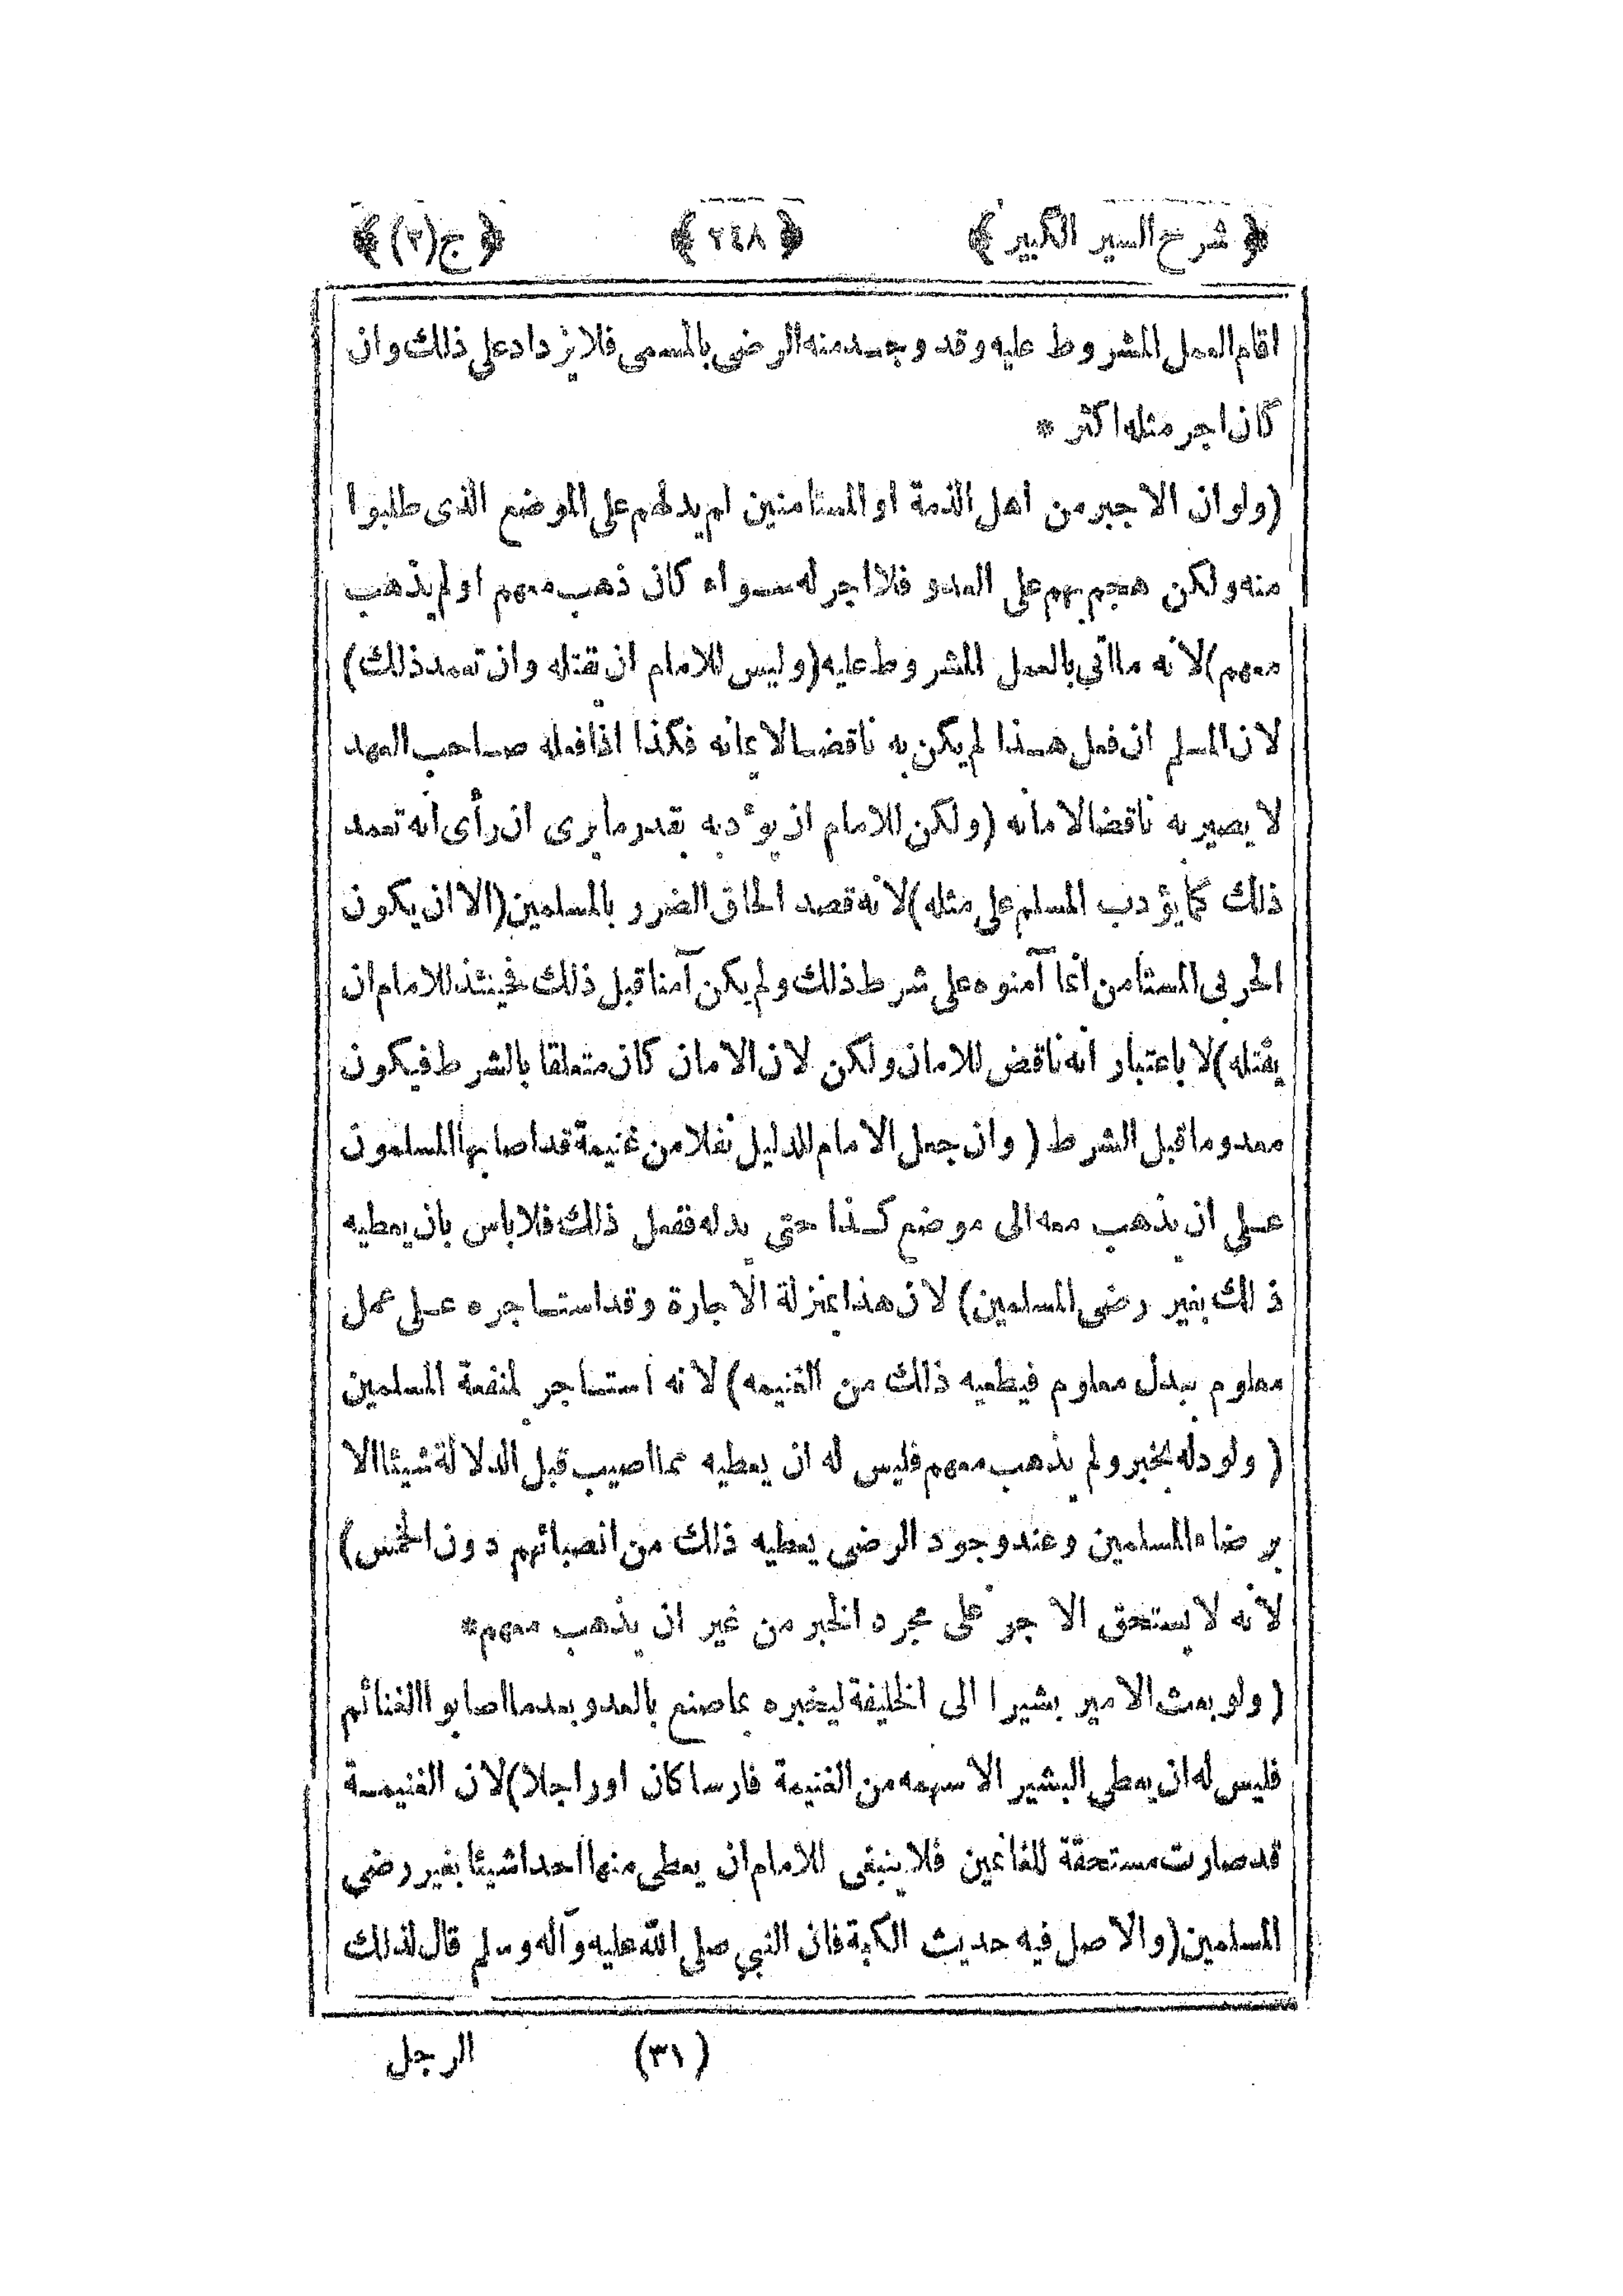 ﴿ شرح السير الكبير ﴾ ﴿ ٢٤٨ ﴾ ﴿ ج (٢) ﴾
اقام العمل المشروط عليه وقد وجد منه الرضى بالمسمى فلا يزداد على ذلك وان
كان اجر مثله اكثر *
(ولو ان الاجير من اهل الذمة او المستامنين لم يدلهم على الموضع الذى طلبوا
منه ولكن هجم بهم على العدو فلا اجر له سواء كان ذهب معهم او لم يذهب
معهم) لانه ما اتى بالعمل المشروط عليه (وليس للامام ان يقتله وان تعمد ذلك)
لان المسلم ان فعل هذا لم يكن به ناقضا لايمانه فكذا اذا فعله صاحب العهد
لا يصير به ناقضا لامانه (ولكن للامام ان يوءدبه بقدر ما يرى ان رأى انه تعمد
ذلك كما يؤدب المسلم على مثله) لانه قصد الحاق الضرر بالمسلمين (الا ان يكون
الحربى المستأمن انما آمنوه على شرط ذلك ولم يكن آمنا قبل ذلك فحينئذ للامام ان
يقتله) لا باعتبار انه ناقض للامان ولكن لان الامان كان متعلقا بالشرط فيكون
معدوما قبل الشرط (وان جعل الامام للدليل نفلا من غنيمة قد اصابها المسلمون
على ان يذهب معه الى موضع كذا حتى يدله ففعل ذلك فلا باس بان يعطيه
ذلك بغير رضى المسلمين) لان هذا بمنزلة الاجارة وقد استاجره على عمل
معلوم ببدل معلوم فيطعيه ذلك من الغنيمه) لانه استاجر لمنفعة المسلمين
(ولو دله بخبر ولم يذهب معهم فليس له ان يعطيه مما اصيب قبل الدلالة شيئا الا
برضاء المسلمين وعند وجود الرضى يعطيه ذلك من انصبائهم دون الخمس)
لانه لا يستحق الاجر على مجرد الخبر من غير ان يذهب معهم *
(ولو بعث الامير بشيرا الى الخليفة ليخبره بما صنع بالعدو بعد ما اصابوا الغنائم
فليس له ان يعطى البشير الا سهمه من الغنيمة فارسا كان او راجلا) لان الغنيمة
قد صارت مستحقة للغانمين فلا ينبغى للامام ان يعطى منها احدا شيئا بغير رضى
المسلمين (والاصل فيه حديث الكبة فان النبي صلى الله عليه وآله وسلم قال لذلك
(٣١) الرجل